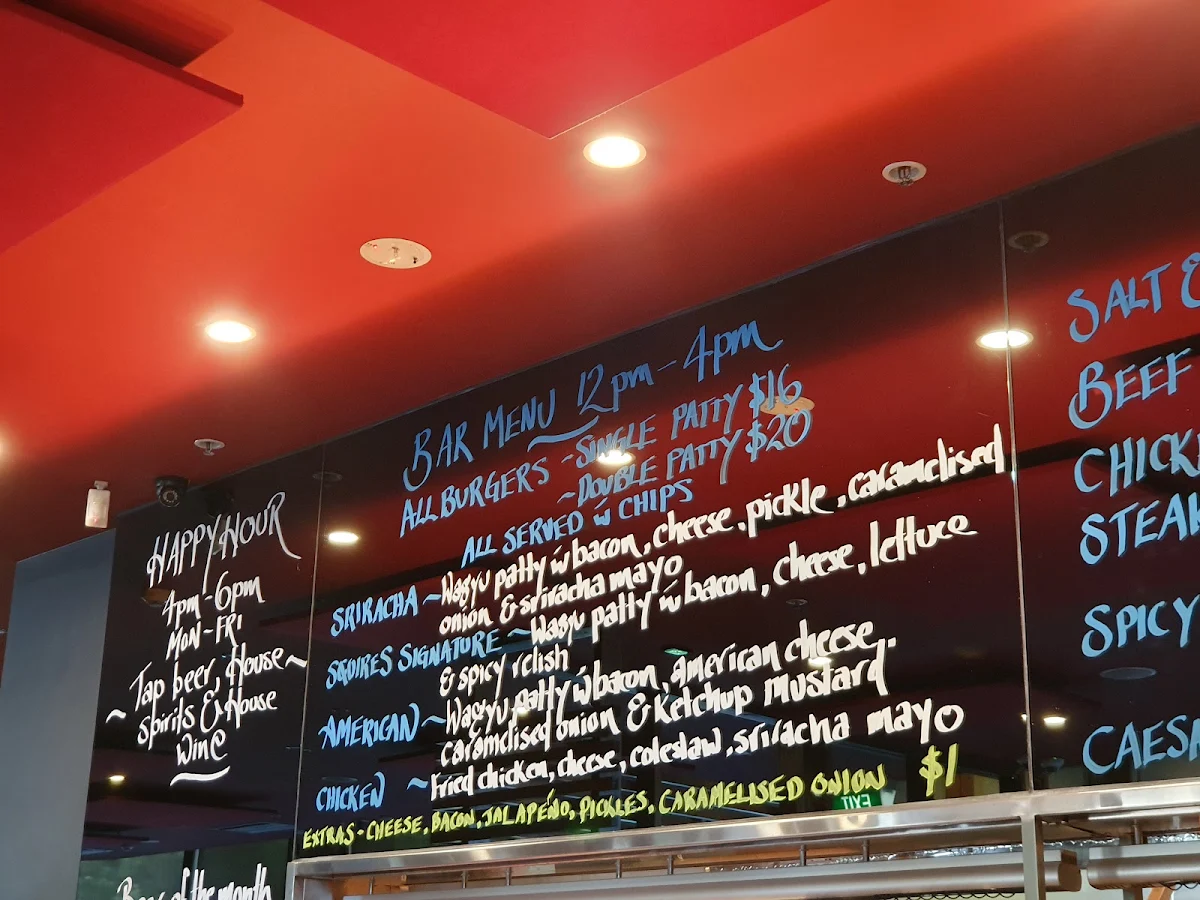 HAPPY HOUR
4pm-6pm
MON-FRI
~ Tap beer, House ~
spirits & House
wine
of the month
BAR MENU 12pm-4pm
ALL BURGERS - SINGLE PATTY $16
~DOUBLE PATTY $20
ALL SERVED w CHIPS
SRIRACHA ~ Wagyu patty w bacon, cheese, pickle, caramelised
onion & sriracha mayo
SQUIRES SIGNATURE ~ Wagyu patty w bacon, cheese, lettuce
& spicy relish
AMERICAN ~ Wagyu patty w bacon, american cheese,
caramelised onion & Ketchup mustard
CHICKEN ~ Fried chicken, cheese, coleslaw, sriracha mayo
EXTRAS - CHEESE, BACON, JALAPEÑO, PICKLES, CARAMELISED ONION $1
EXIT
SALT &
BEEF
CHICK
STEA
SPICY
CAESA